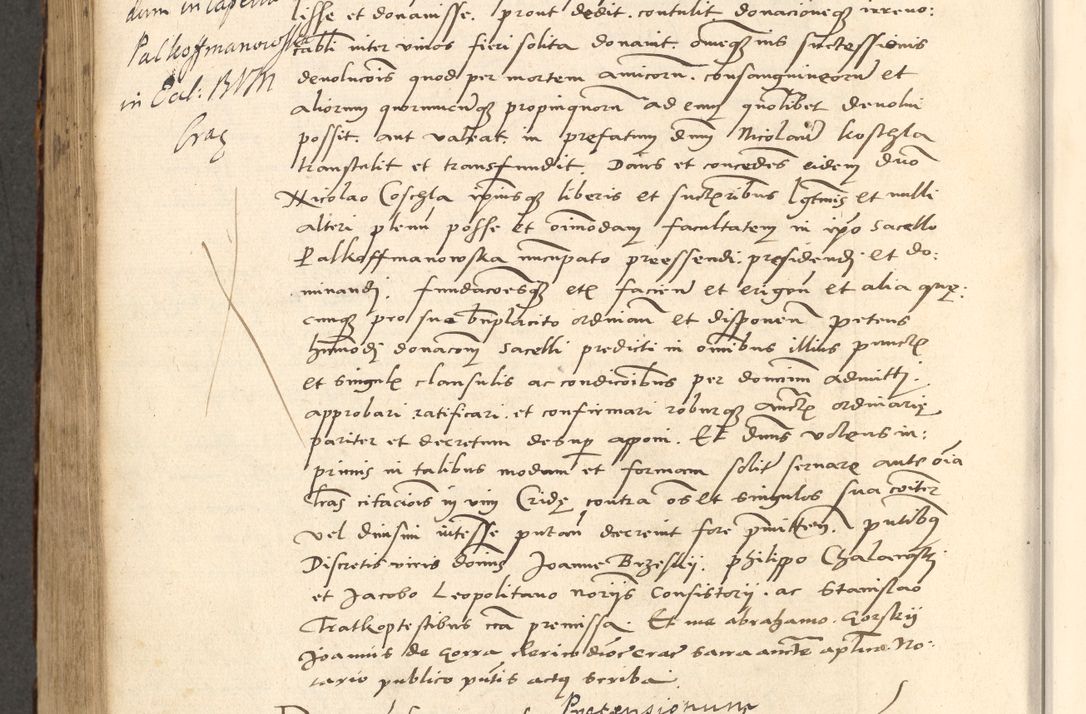 dum in capella
Palkoffmanowska
in Ecl: BVM
Crac
lesse et donavisse. prout dedit. contulit donacioneque irrevo:
cabli inter vivos fieri solita donavit. omneque ius successionis
devolucois quod per mortem amicorum. consanguineorum et
aliorum quorumcunque propinquorum ad eum quolibet devolvi
possit. aut valeat. in prefatum dnm Nicolaum Koschla
transtulit et transfundit. Dans et concedens eidem dno
Nicolao Coschla ipiusque liberis et successoribus lgtmis et nulli
alteri plenum posse et oimodam facultatem in ipo sacello
Palkoffmanowska nuncupato preessendi. presidendi. et do:
minandi. fundacoesque etc faciend et erigend et alia que:
cunque pro sue bnplacito ordinand et disponend petens
hmodi donacom sacelli predicti in omnibus illius punctis
et singulis clausulis ac condicoibus per dominum admitti.
approbari. ratificari. et confirmari roburque aucte ordinarie
pariter et decretum desup apponi. Et dnus volens in:
primis in talibus modum et formam solit servare ante oia
lras citacois in vim Cride contra os et singulos sua coiter
vel divisim intesse putan decrevit fore pmitten. pntibus
Discretis viris dominis Joanne Brzeskij. Philippo
et Jacobo Leopolitano noriis Consistorij. ac Stanislao
testibus cca premissa. Et me Abrahamo. Gorskij
Joannis de Gorra clerico dioc crac sacra aucte aplica No:
tario publico pntis actus scriba.